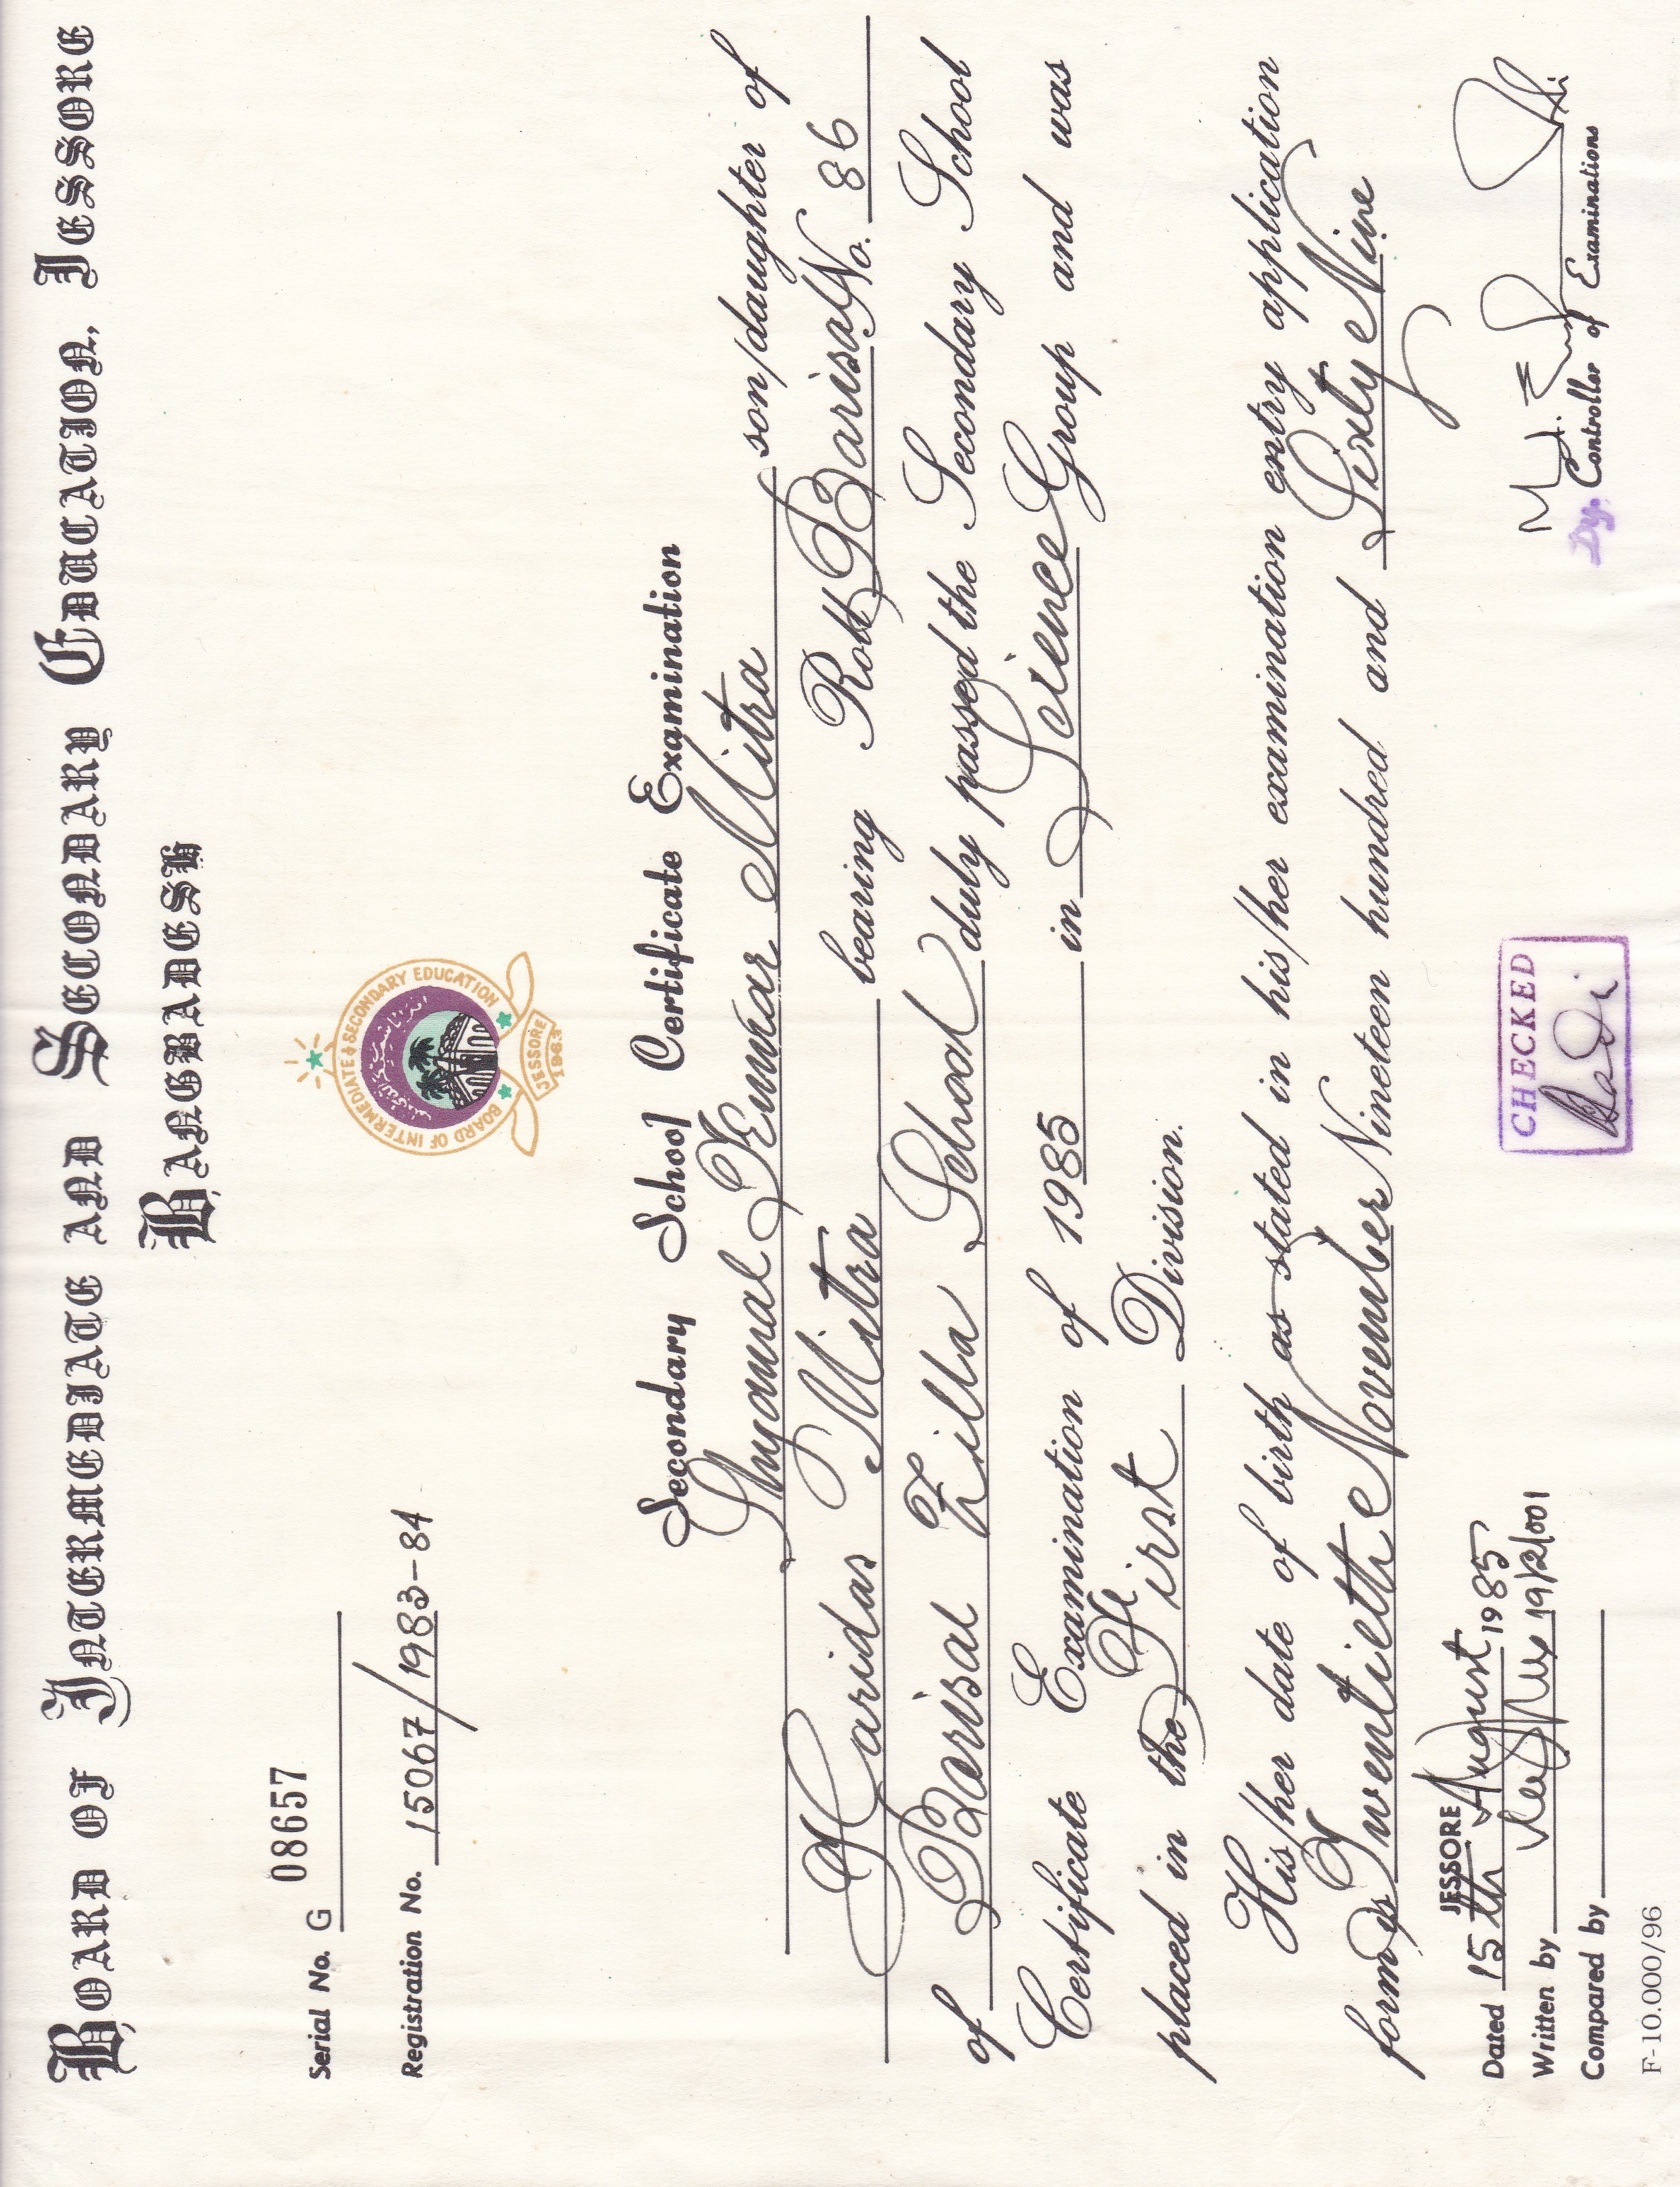 BOARD OF INTERMEDIATE AND SECONDARY EDUCATION, JESSORE
BANGBADESH
Serial No. G 08657
Registration No. 15067/1983-84
BOARD OF INTERMEDIATE & SECONDARY EDUCATION
JESSORE
1963
Secondary School Certificate Examination
Shyamal Kumar Mitra son/daughter of
Haridas Mitra bearing Roll Barisal No. 86
of Barisal Zilla School duly passed the Secondary School
Certificate Examination of 1985 in Science Group and was
placed in the First Division.
His/her date of birth as stated in his/her examination entry application
form is Twentieth November Nineteen hundred and Sixty Nine
JESSORE
Dated 15th August 1985
Written by 19/2/001
Compared by
CHECKED
Dy. Controller of Examinations
F-10.000/96